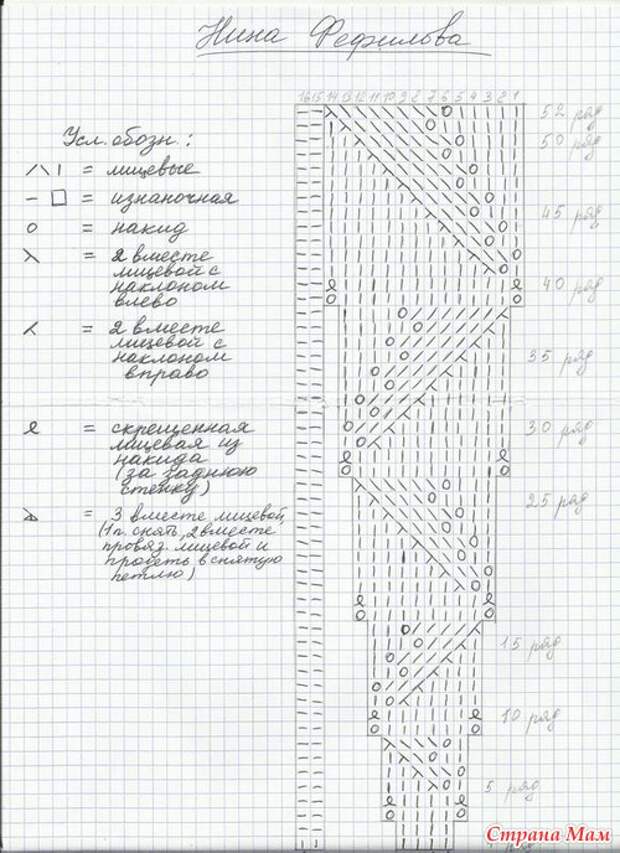 Нина Фефилова
16 15 14 13 12 11 10 9 8 7 6 5 4 3 2 1
Усл. обозн.:
= лицевые
= изнаночная
= накид
= 2 вместе
лицевой с
наклоном
влево
= 2 вместе
лицевой с
наклоном
вправо
= скрещенная
лицевая из
накида
(за заднюю
стенку)
= 3 вместе лицевой,
(1 п. снять, 2 вместе
провяз. лицевой и
продеть в снятую
петлю)
52 ряд
50 ряд
45 ряд
40 ряд
35 ряд
30 ряд
25 ряд
15 ряд
10 ряд
5 ряд
Страна Мам